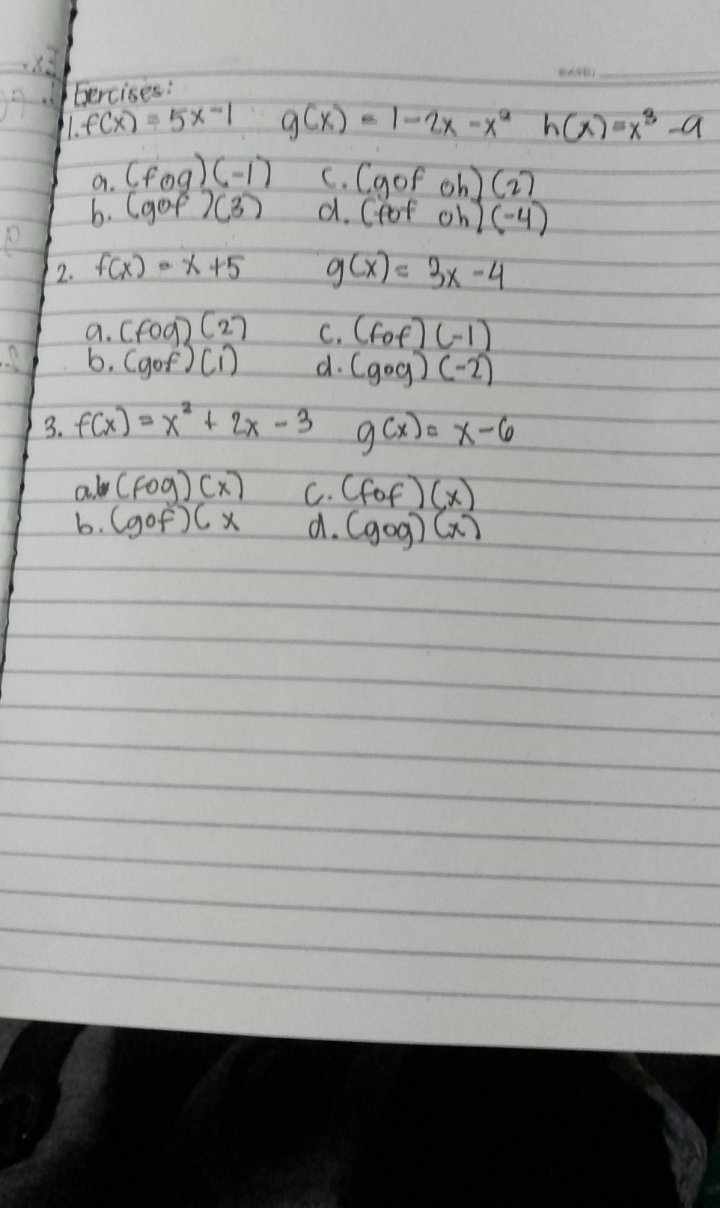 Exercises:
1. f(x) = 5x-1 g(x) = 1-2x-x² h(x)=x³-9
a. (fog)(-1) c. (gof oh)(2)
b. (gof)(3) d. (fof oh)(-4)
2. f(x) = x+5 g(x) = 3x-4
a. (fog)(2) c. (fof)(-1)
b. (gof)(1) d. (gog)(-2)
3. f(x) = x² + 2x - 3 g(x) = x-6
a. (fog)(x) c. (fof)(x)
b. (gof)(x d. (gog)(x)